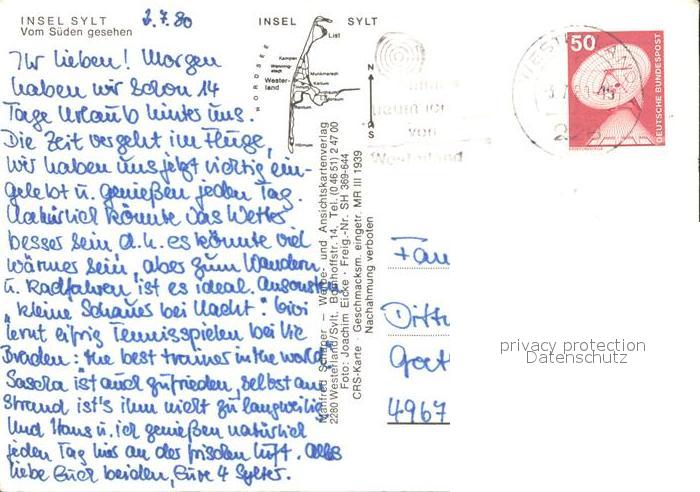 INSEL SYLT
Vom Süden gesehen
2.7.80
Ihr lieben! Morgen
haben wir schon 14
Tage Urlaub hinter uns.
Die Zeit vergeht im Fluge,
wir haben uns jetzt richtig ein-
gelebt u. genießen jeden Tag.
Natürlich könnte das Wetter
besser sein d.h. es könnte viel
wärmer sein, aber zum Wandern
u. Radfahren ist es ideal. Ansonsten
"kleine Schauer bei Nacht".
lernt eifrig Tennisspielen bei Vic
Braden: the best trainer in the world.
Sascha ist auch zufrieden, selbst am
Strand ist's ihm nicht zu langweilig
Und Hans u. ich genießen natürlich
jeden Tag hier an der frischen Luft. Alles
liebe Euch beiden, Eure 4 Sylter.
INSEL SYLT
NORDSEE
List
Kampen
Wenning-
stedt
Munkmarsch
Wester-
land
Keitum
Rantum
Hörnum
N
S
Manfred - Werbe- und Ansichtskartenverlag
2280 Westerland/Sylt, Bahnhofstr. 14, Tel. (0 46 51) 2 47 00
Foto: Joachim Eicke · Freig.-Nr. SH 369-644
CRS-Karte · Geschmacksm. eingetr. MR III 1939
Nachahmung verboten
von
Westerland
50
DEUTSCHE BUNDESPOST
Fam
4967
privacy protection
Datenschutz